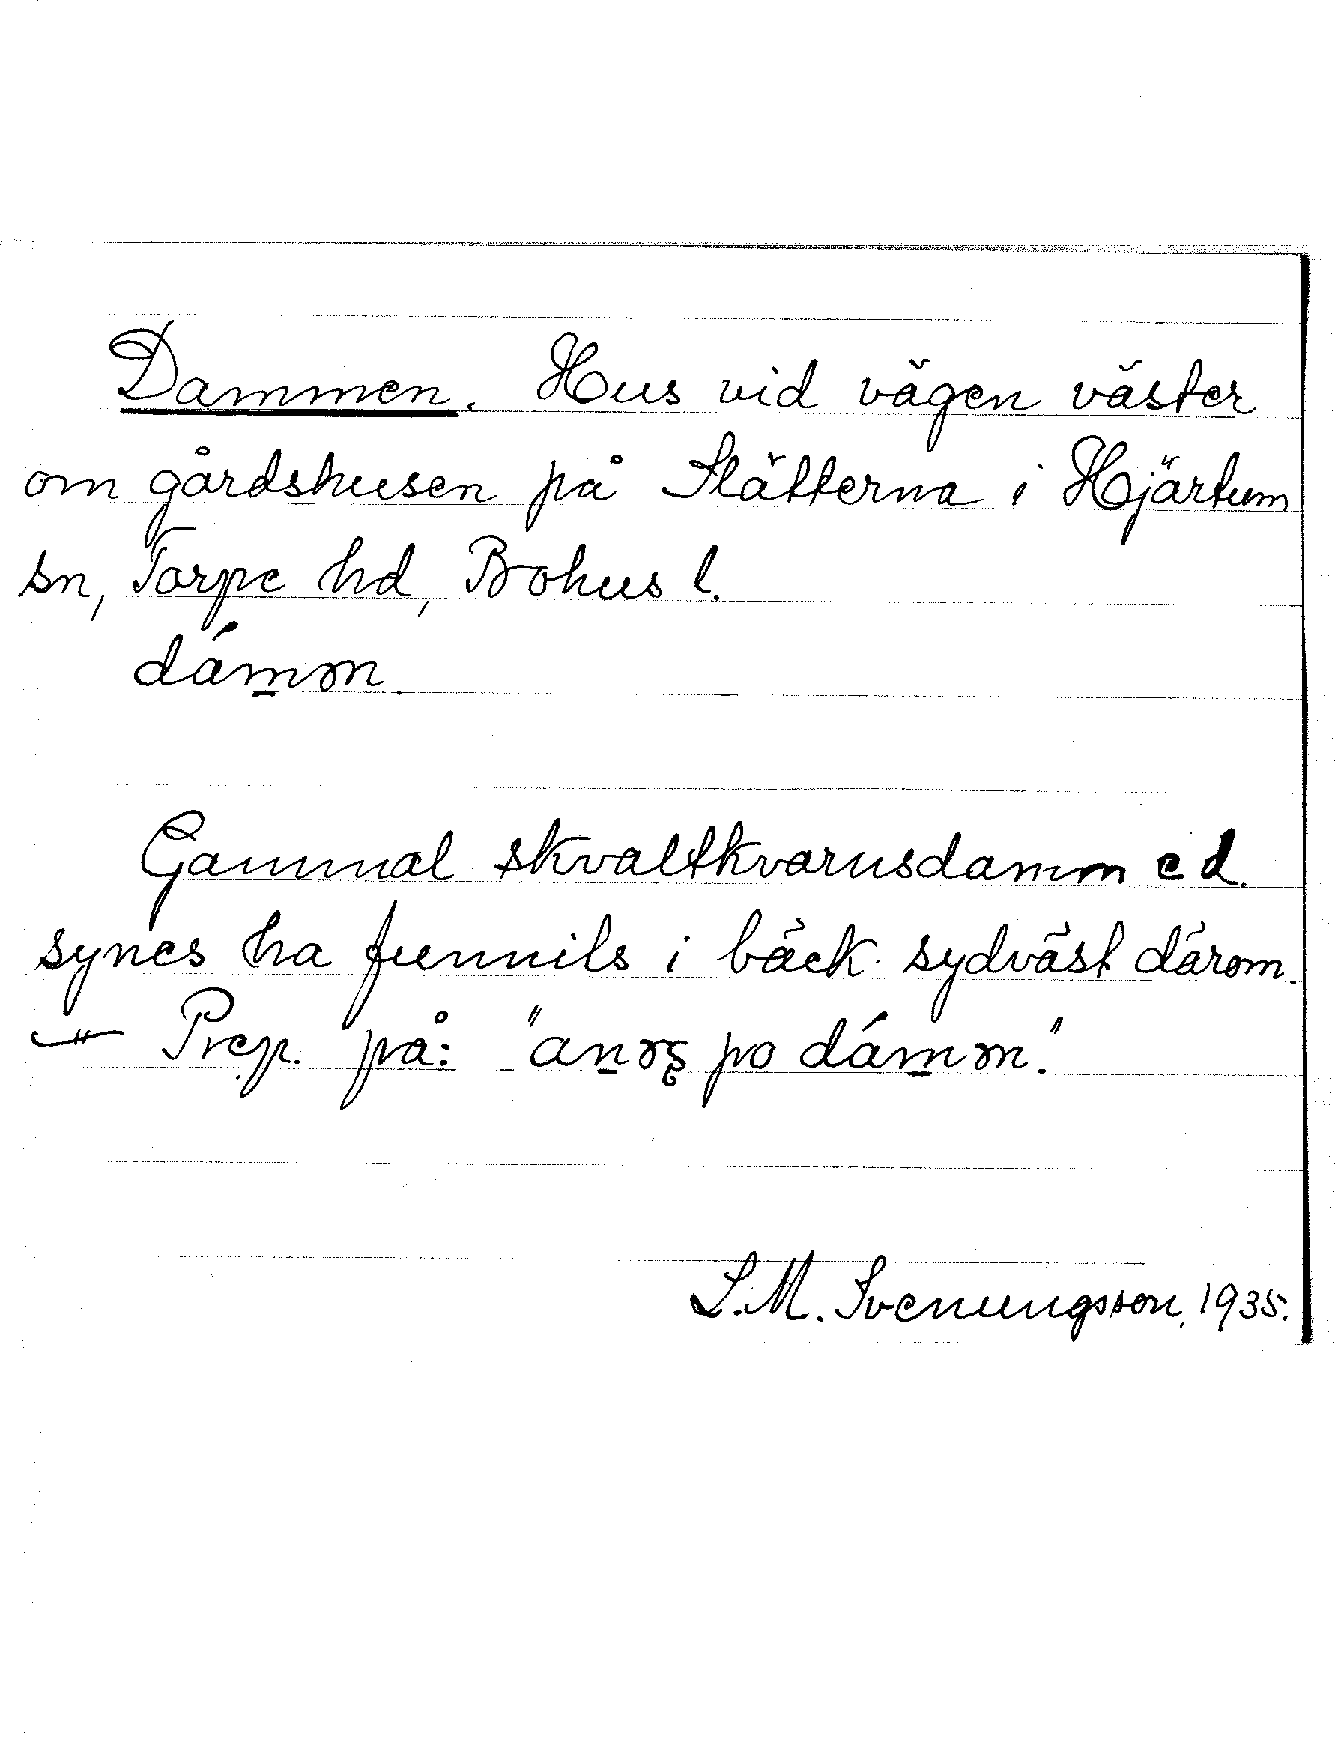 Dammen. Hus vid vägen väster
om gårdshusen på Slätterna i Hjärtum
sn, Torpe hd, Bohus l.
dám̲ən
Gammal skvaltkvarnsdamm e d.
synes ha funnits i bäck sydväst därom.
— Prep. på: "po dám̲ən."
S. M. Svenungsson, 1935.